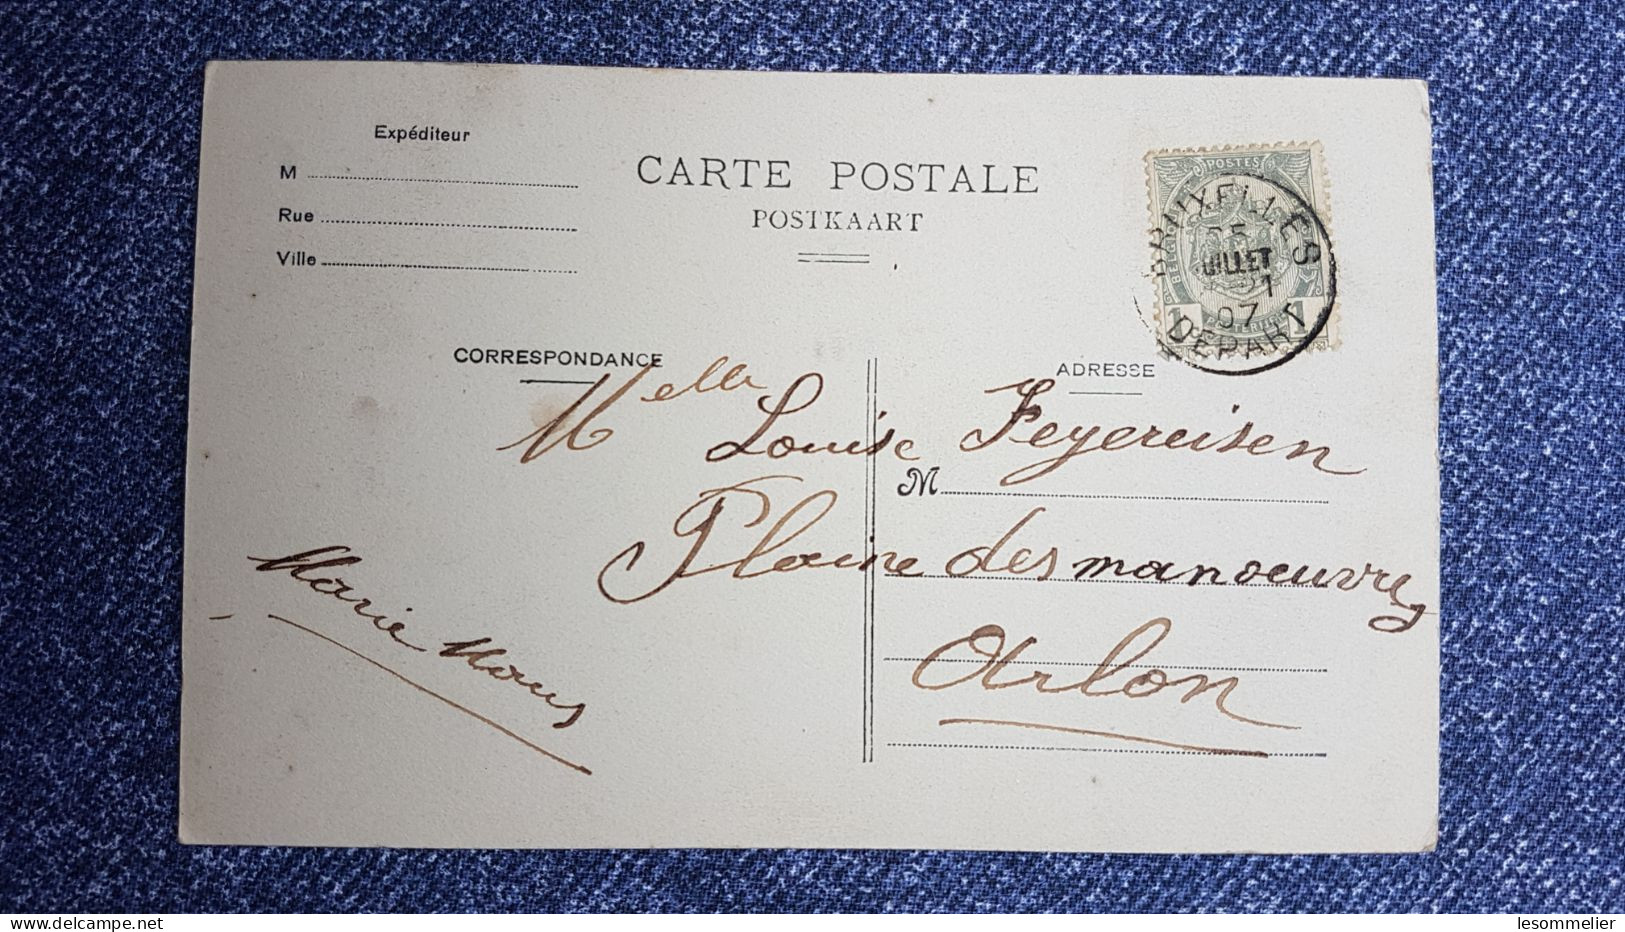 Expéditeur
M
Rue
Ville
CARTE POSTALE
POSTKAART
POSTES
1 1
BRUXELLES
JUILLET
07
DEPART
CORRESPONDANCE
ADRESSE
Melle Louise Feyereisen
M
Plaine des manoeuvres
Arlon
Marie
delcampe.net
lesommelier